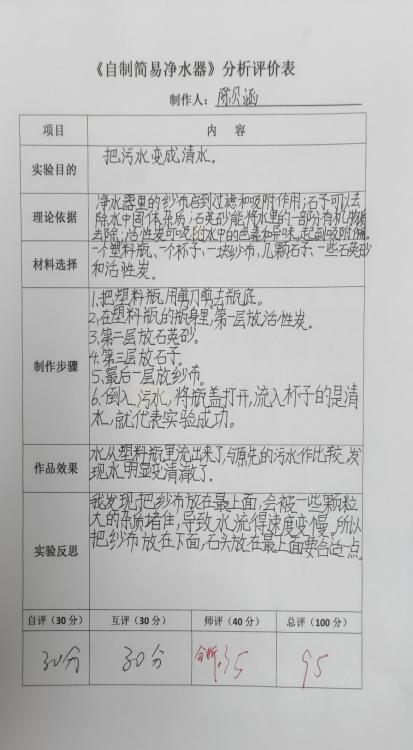 《自制简易净水器》分析评价表
制作人：陈贝涵
项目 内 容
实验目的 把污水变成清水。
净水器里的纱布起到过滤和吸附作用；石子可以去
理论依据 除水中固体杂质；石英砂能将水里的一部分有机物质
去除；活性炭可吸附水中的色素和异味，起到吸附作用。
一个塑料瓶、一个杯子、一块纱布、几颗石子、一些石英砂
材料选择 和活性炭。
1.把塑料瓶用剪刀剪去瓶底。
2.在塑料瓶的瓶身里，第一层放活性炭。
3.第二层放石英砂。
制作步骤 4.第三层放石子。
5.最后一层放纱布。
6.倒入污水，将瓶盖打开，流入杯子的是清
水，就代表实验成功。
水从塑料瓶里流出来了，与原先的污水作比较，发
作品效果 现水明显变清澈了。
我发现把纱布放在最上面，会被一些颗粒
大的杂质堵住，导致水流得速度变慢。所以
实验反思 把纱布放在下面，石头放在最上面要合适一点。
自评（30分） 互评（30分） 师评（40分） 总评（100分）
30分 30分 分析.35 95